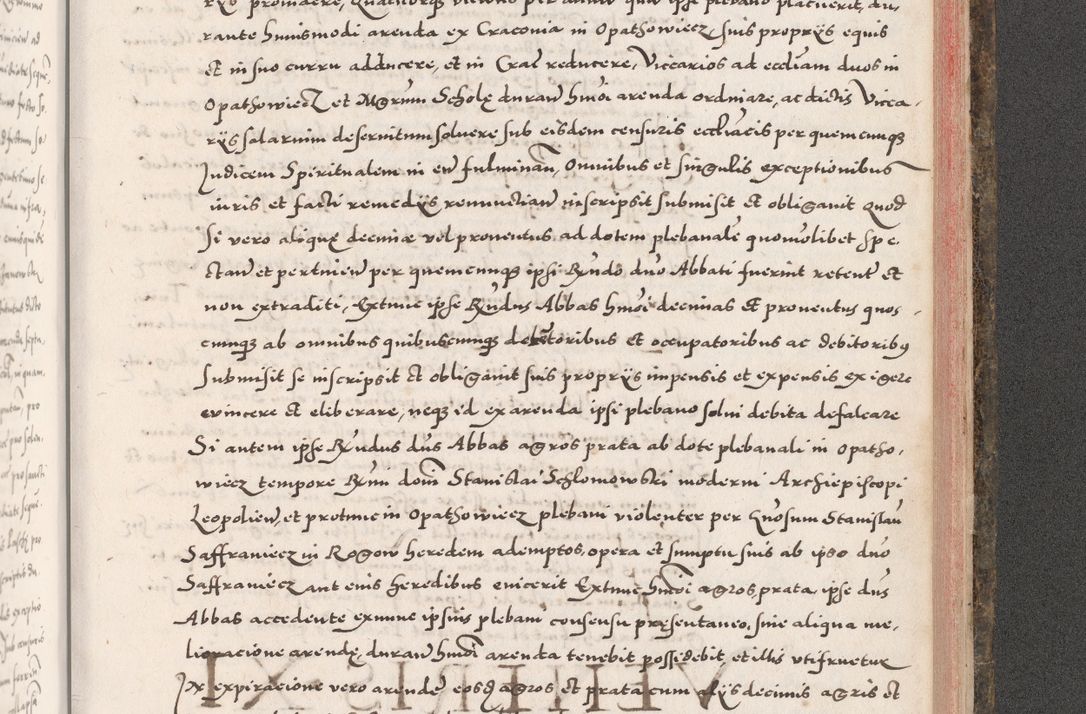 rante huiusmodi arenda ex Craconia in Opathowiecz suis proprÿs equis
et in suo curru adducere, et in Crac̃ reducere, Viccarios ad eccl̃iam duos in
Opathowiecz et Mgr̃um Scholę duran̄ hmõi arenda ordinare, ac dictis Vicca-
rÿs salarium deseruitum soluere sub eisdem censuris eccl̃iacis per quemcunqʒ
Judicem Spiritualem in eũ fulminan̄, Omnibus et singulis exceptionibus
iuris et facti remedÿs renunctian̄ inscripsit submisit et obligauit Quod
si vero aliquę decimæ vel prouentus ad dotem plebanalẽ quomolibet spe-
ctan̄ et pertinen̄ per quemcunqʒ ipsi Rṽdo dño Abbati fuerint retent̃ et
non extraditi, Extunc ipse Rṽdus Abbas hmõi decimas et prouentus quos-
cunqʒ ab omnibus quibuscunqʒ detẽtoribus et occupatoribus ac debitoribꝰ
submisit se inscripsit et obligauit suis proprÿs impensis et expensis exigere
euincere et eliberare, neqʒ id ex arenda ipsi plebano solui debita defalcare
Si autem ipse Rṽdus dñs Abbas agros prata ab dote plebanali in Opatho-
wiecz tempore Rṽmi domĩ Stanislai Schlomowski moderni Archiepiscopi
Leopolien̄, et protunc in Opathowiecz plebani violenter per Gñosum Stanislaũ
Saffraniecz in Rogow heredem ademptos, opera et sumptu suis ab ipso dño
Saffraniecz aut eius heredibus euicerit Extunc hmõi agros, prata ipse dñs
Abbas accedente ex nunc ipsius plebani consensu pręsentaneo, siue aliqua me-
lioracione arendę, duran̄ hmõi arenda tenebit possidebit, et illis vtifruetur
Ex expiracione vero arendę eosdẽ agros et prata cum alÿs decimis agris et